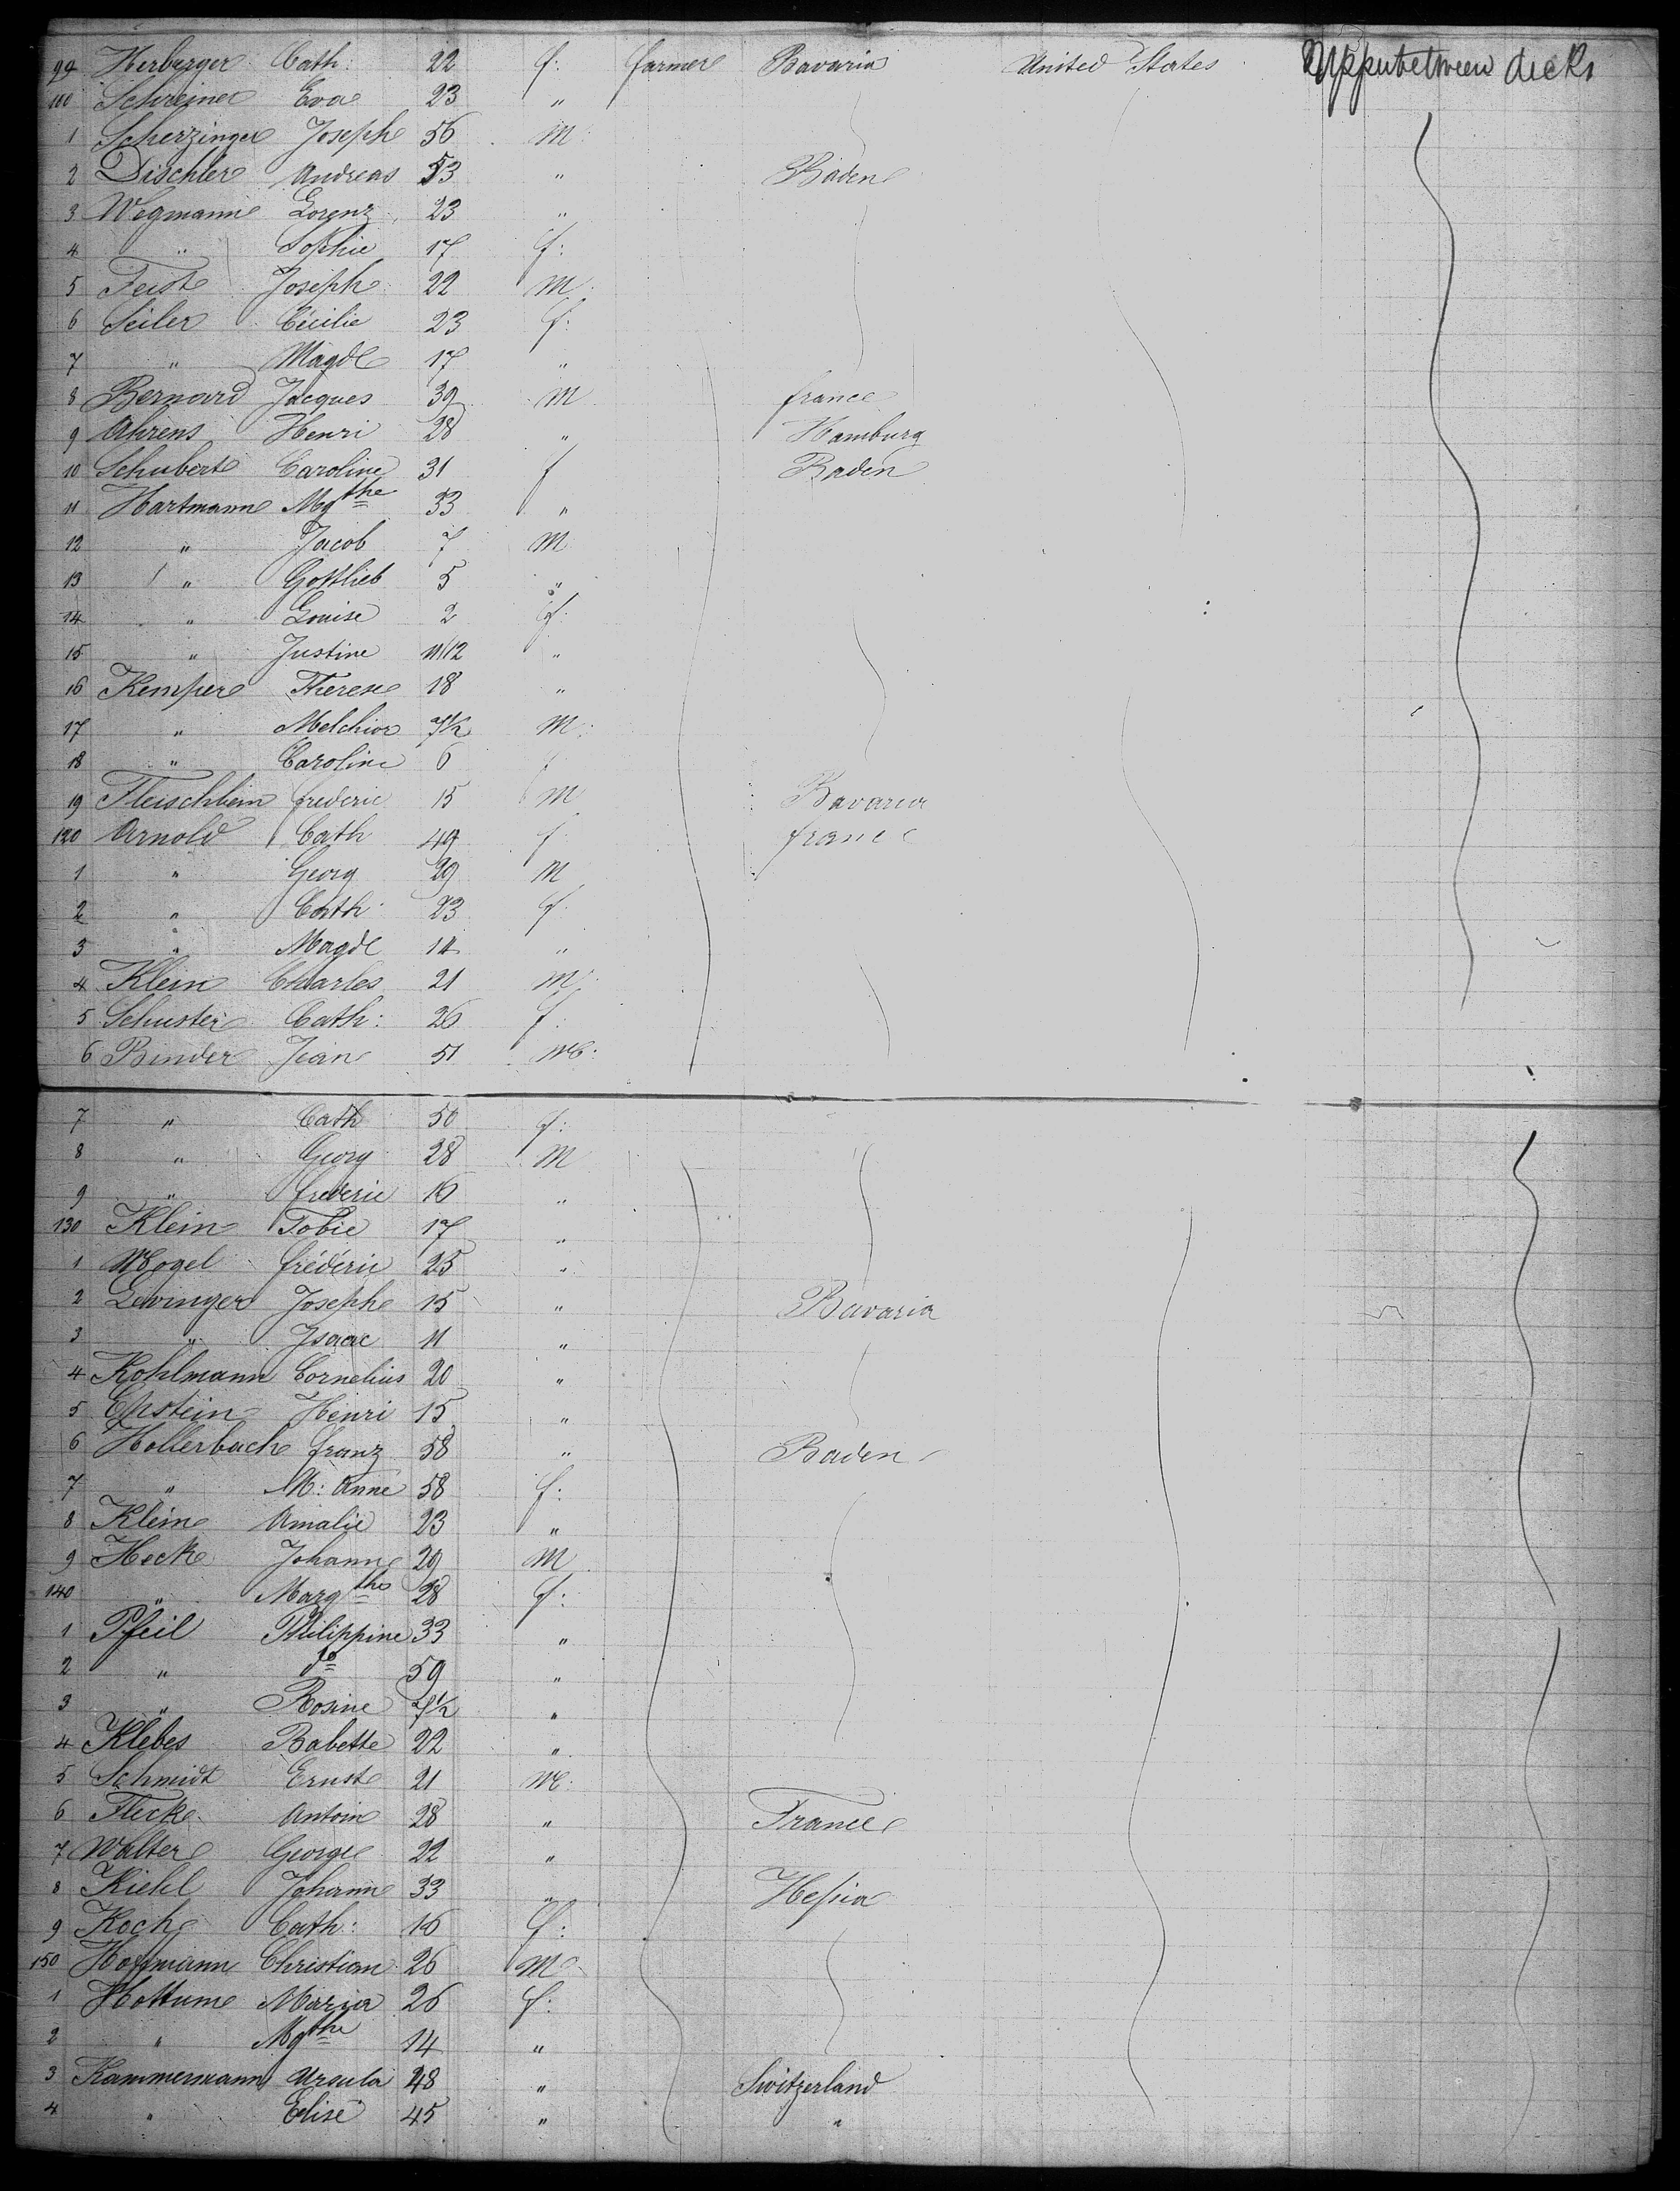 99 Herberger Cath: 22 f: farmer Bavaria United States Upper between decks
100 Schreiner Eva 23 "
1 Scherzinger Joseph 56 m:
2 Dischler Andreas 53 " Baden
3 Wegmann Lorenz 23 "
4 " Sophie 17 f:
5 Feist Joseph 22 m:
6 Seiler Cécilie 23 f:
7 " Magd 17 "
8 Bernard Jacques 39 m france
9 Ahrens Henri 28 " Hamburg
10 Schubert Caroline 31 f Baden
11 Hartmann Mgthe 33 "
12 " Jacob 7 m
13 " Gottlieb 5 "
14 " Louise 2 f:
15 " Justine 11/12 "
16 Kemper Therese 18 "
17 " Melchior 7½ m:
18 " Caroline 6 f
19 Fleischbein frederic 15 m Bavaria
120 Arnold Cath 49 f france
1 " Georg 29 m
2 " Cath 23 f
3 " Magd 14 "
4 Klein Charles 21 m
5 Schuster Cath: 26 f:
6 Binder Jean 51 m:
7 " Cath 50 f:
8 " Georg 28 m
9 " frederic 16 "
130 Klein Tobie 17 "
1 Mogel frédéric 25 "
2 Lewinger Joseph 15 " Bavaria
3 " Isaac 11 "
4 Kohlmann Cornelius 20 "
5 Epstein Henri 15 "
6 Hollerbach franz 58 " Baden
7 " M: Anne 58 f:
8 Klein Amalie 23 "
9 Heck Johann 29 m
140 " Margthe 28 f:
1 Pfeil Philippine 33 "
2 " do 59 "
3 " Rosine 7½ "
4 Klebes Babette 22 "
5 Schmidt Ernst 21 m:
6 Fleck Antoin 28 " France
7 Walter George 22 "
8 Kiehl Johann 33 " Hessia
9 Koch Cath: 16 f:
150 Hoffmann Christian 26 m
1 Hottum Maria 26 f:
2 " Mgthe 14 "
3 Kammermann Ursula 48 " Switzerland
4 " Elise 45 " "